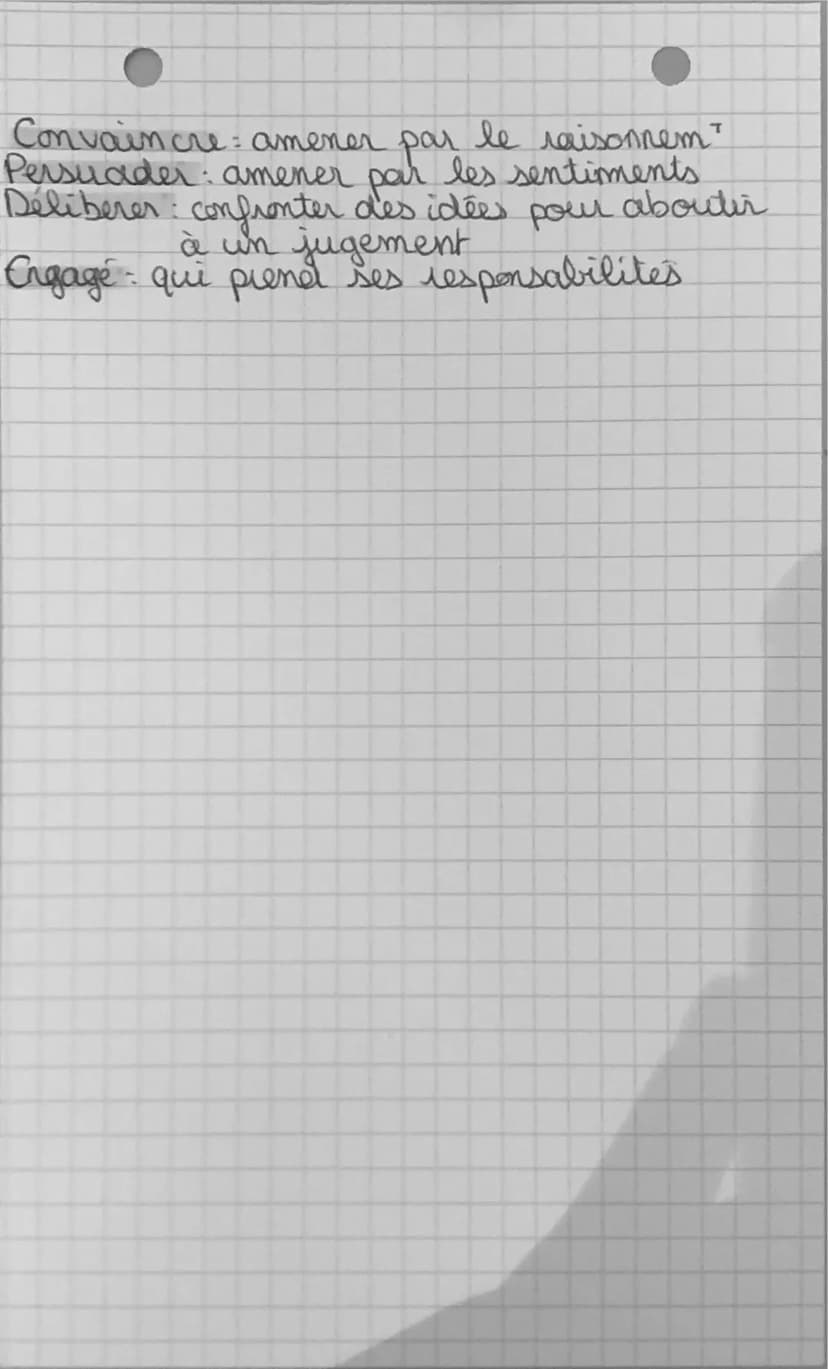 Convaincre : amener par le raisonnemᵀ
Persuader : amener par les sentiments
Déliberer : confronter des idées pour aboutir
à un jugement
Engagé : qui prend ses responsabilités